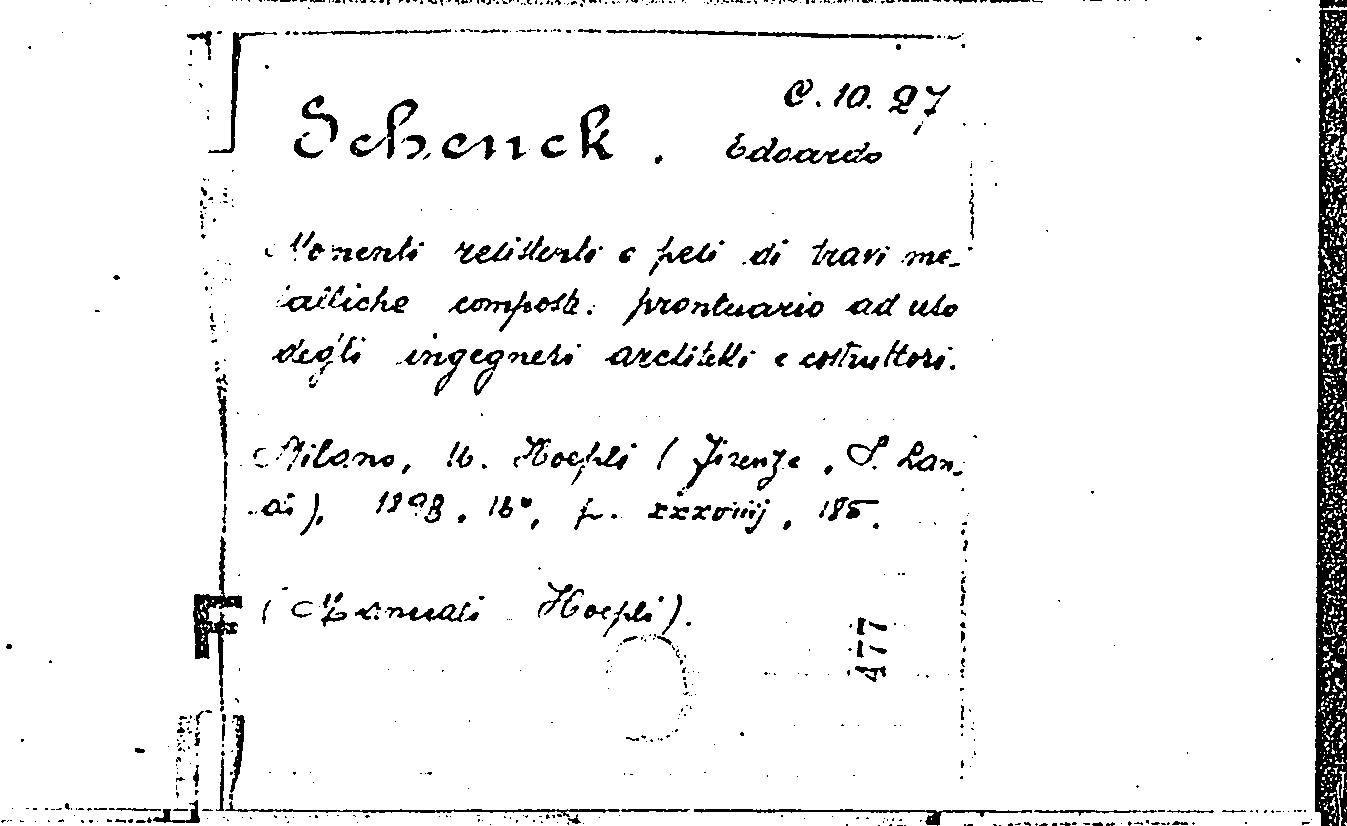 C. 10. 27
Schenck. Edoardo
Momenti resistenti e pesi di travi me-
talliche composte. prontuario ad uso
degli ingegneri architetti e costruttori.
Milano, U. Hoepli (Firenze, S. Lan-
di), 1898, 16°, p. xxxviiij, 185.
(Manuali Hoepli).
477